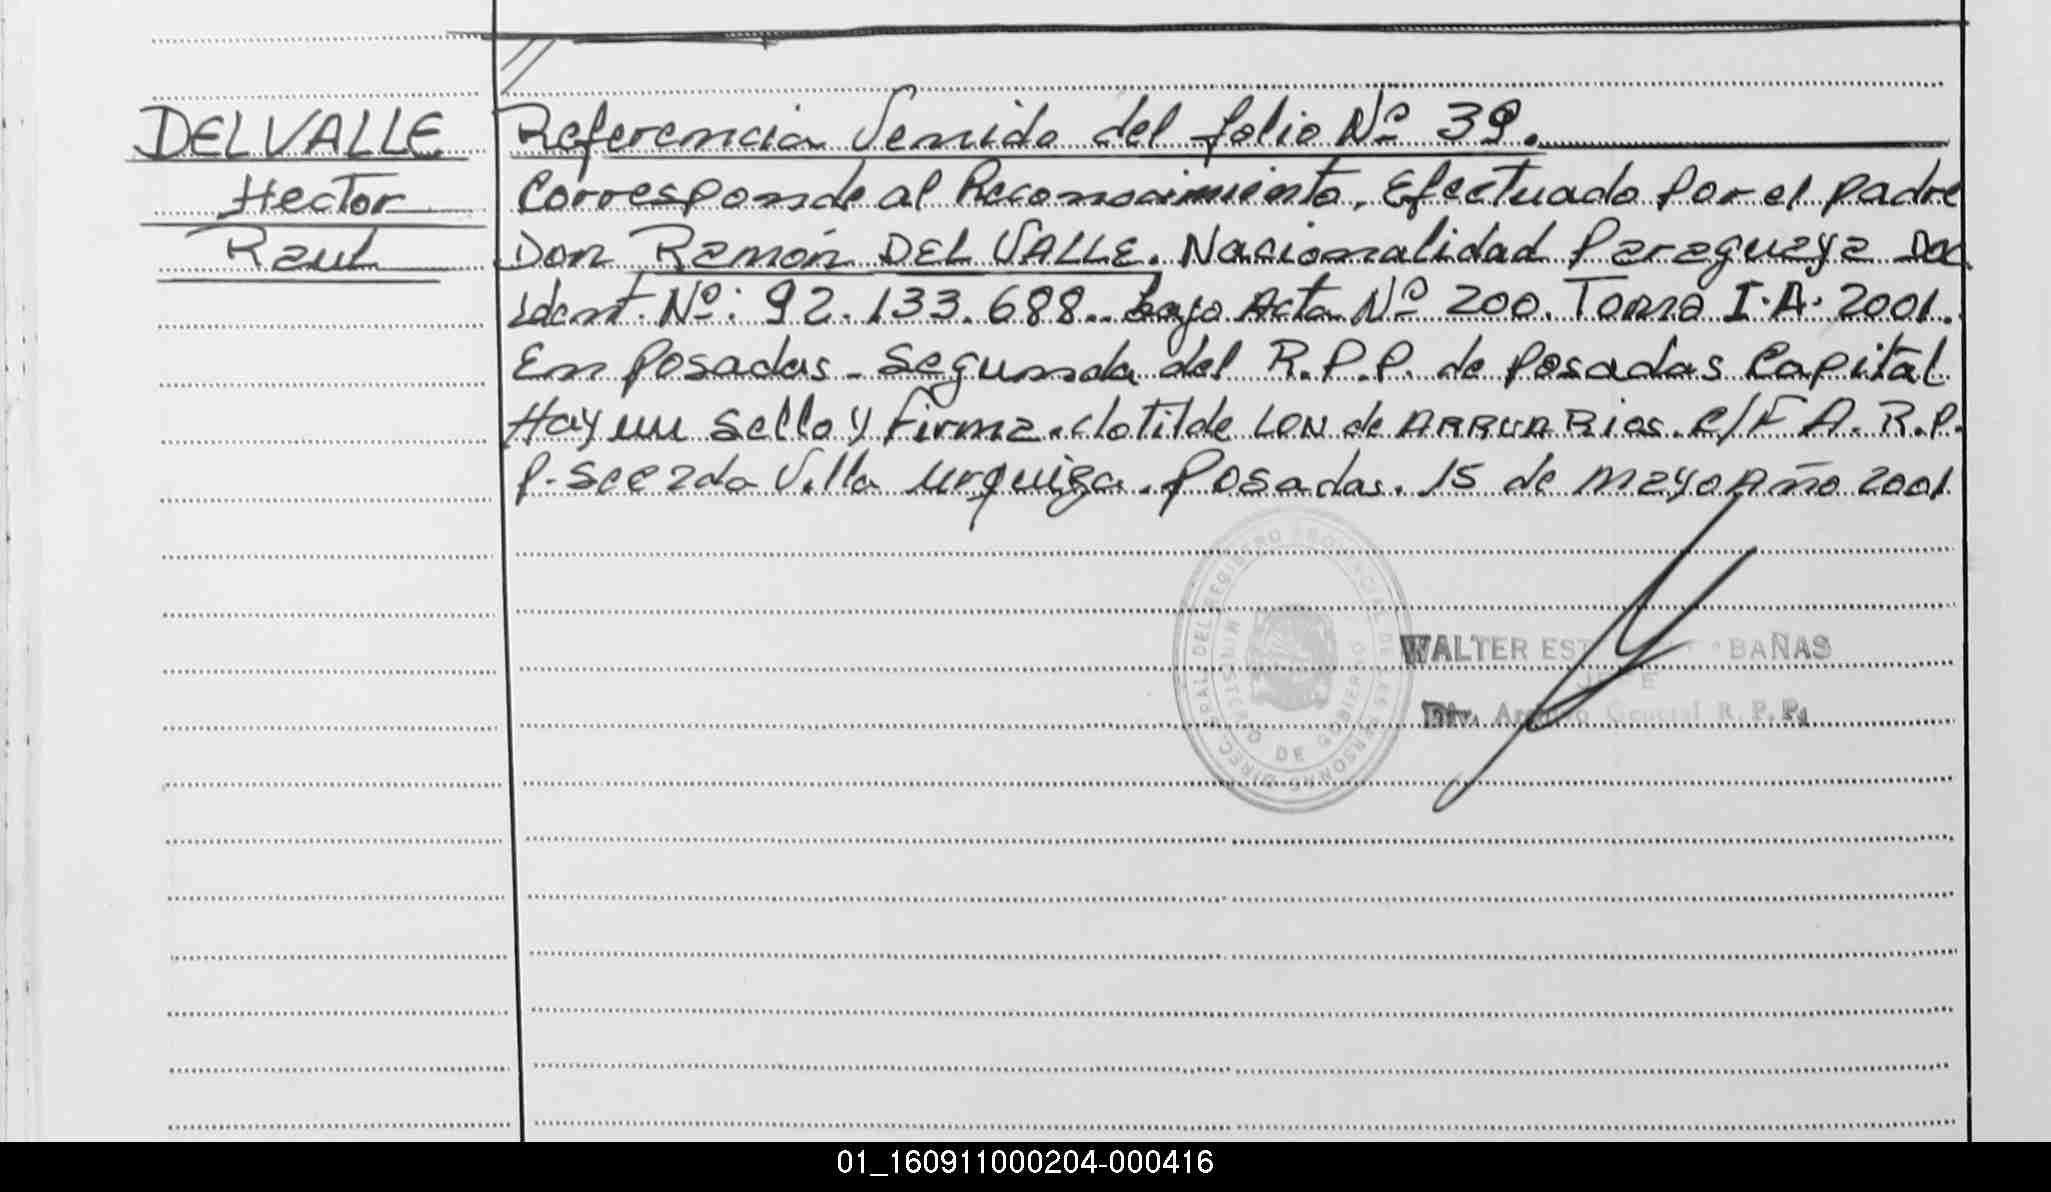 DEL VALLE
Hector
Raul
Referencia Venida del folio Nº 39.
Corresponde al Reconocimiento, Efectuado por el padre
Don Ramón DEL VALLE. Nacionalidad Paraguaya Doc
Ident. Nº: 92.133.688.. bajo Acta Nº 200. Tomo I.A. 2001.
En Posadas - Segunda del R.P.P. de Posadas Capital
Hay un Sello y Firma. Clotilde LON de ARRUA Rios. E/F A. R.P.
P. Sec 2da Villa Urquiza. Posadas. 15 de Mayo Año 2001
DIREC. GRAL. DEL REGISTRO PROVINCIAL DE LAS PERSONAS
MINISTERIO DE GOBIERNO
WALTER BAÑAS
Div. General R.P.P.
01_160911000204-000416